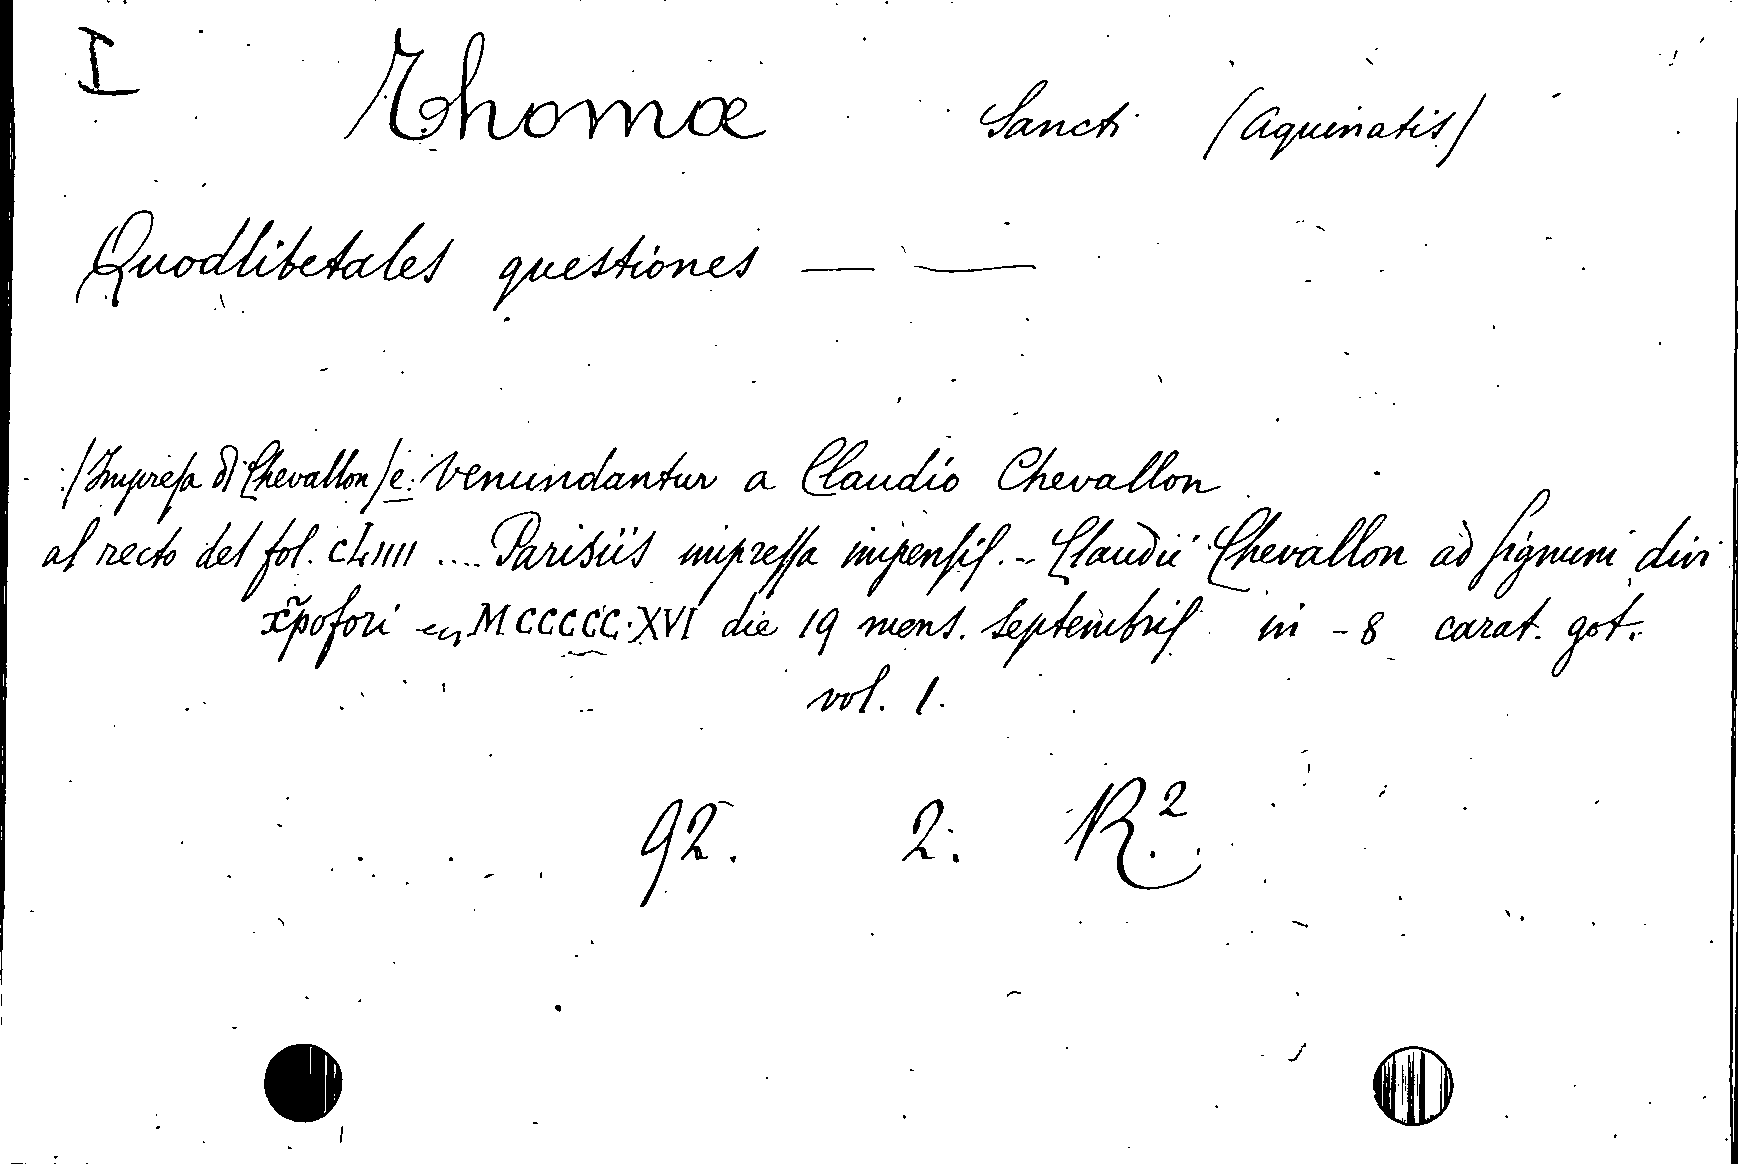 I Thomæ Sancti (Aquinatis)
Quodlibetales questiones — —
(Impresa di Chevallon) e: Venundantur a Claudio Chevallon
al recto del fol. CLIIII .... Parisiis impressa impensis. - Claudii Chevallon ad signum divi
xp̃ofori MCCCCC.XVI die 19 mens. Septembris in - 8 carat. got.
vol. 1.
92. 2. R.²